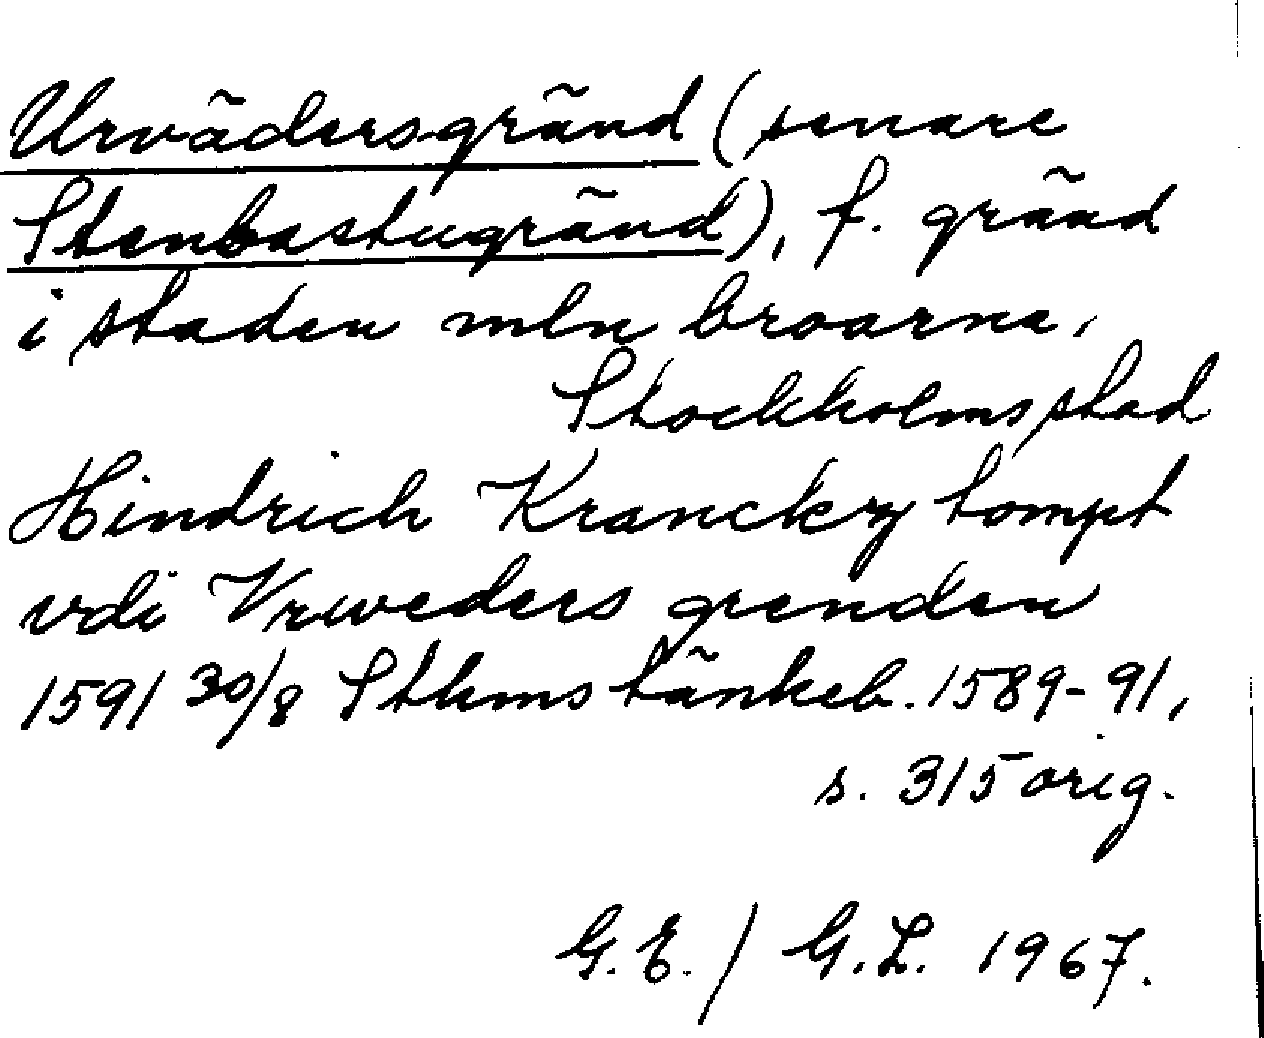 Urvädersgränd (senare
Stenbastugränd), f. gränd
i staden mln broarna,
Stockholms stad
Hindrich Kranckz tompt
vdi Vrweders grenden
1591 30/8 Sthms tänkeb. 1589-91,
s. 315 orig.
G.E. / G.L. 1967.